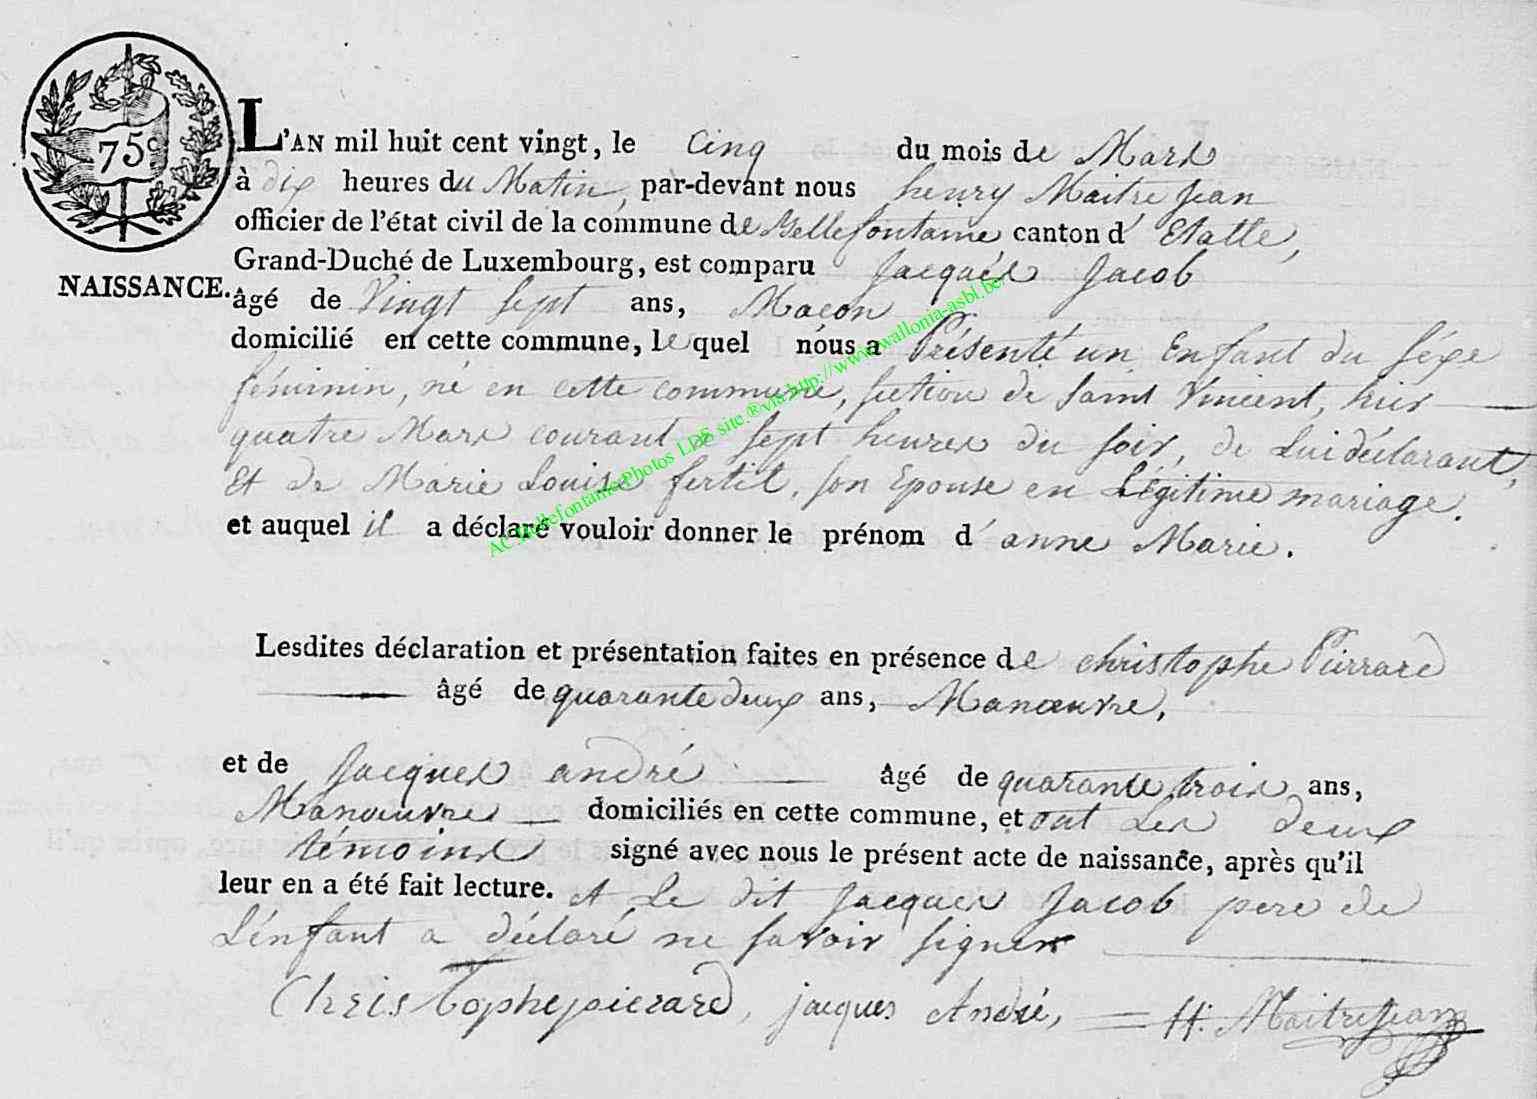 75 c.
NAISSANCE.
L'AN mil huit cent vingt, le Cinq du mois de Mars
à dix heures du Matin, par-devant nous henry Maitre Jean
officier de l'état civil de la commune de Bellefontaine canton d'Etalle,
Grand-Duché de Luxembourg, est comparu Jacques Jacob
âgé de Vingt Sept ans, Maçon
domicilié en cette commune, lequel nous a Présenté un Enfant du Séxe
féminin, né en cette commune, section de Saint Vincent, hier
quatre Mars courant a Sept heures du soir, de Lui déclarant,
Et de Marie Louise fertil, son Epouse en Légitime mariage.
et auquel il a déclaré vouloir donner le prénom d'anne Marie.
Lesdites déclaration et présentation faites en présence de christophe Pierrard
âgé de quarante deux ans, Manœuvre,
et de Jacques andré âgé de quarante trois ans,
Manœuvre domiciliés en cette commune, et ont Les deux
témoins signé avec nous le présent acte de naissance, après qu'il
leur en a été fait lecture. Et Le dit Jacques Jacob pere de
L'énfant a déclaré ne savoir signer
Christophe pierard, jacques André, H: MaitreJean
AC Bellefontaine Photos LDS site ® via http://www.wallonia-asbl.be/